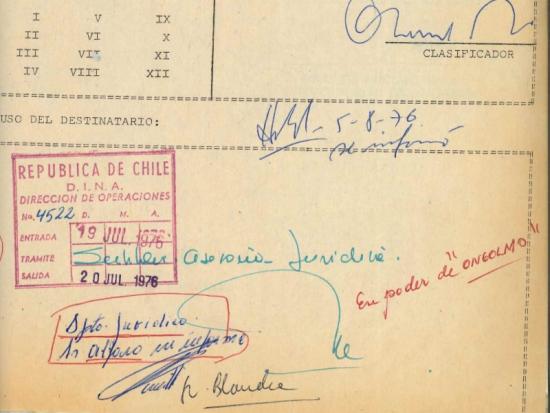 I V IX
II VI X
III VII XI
IV VIII XII
CLASIFICADOR
USO DEL DESTINATARIO:
5-8-76
se informó
REPUBLICA DE CHILE
D.I.N.A.
DIRECCION DE OPERACIONES
No. 4522 D. M. A.
ENTRADA 19 JUL. 1976
TRAMITE
asesoria Juridica.
SALIDA 20 JUL. 1976
En poder de "ONGOLMO"
Dpto. Juridico